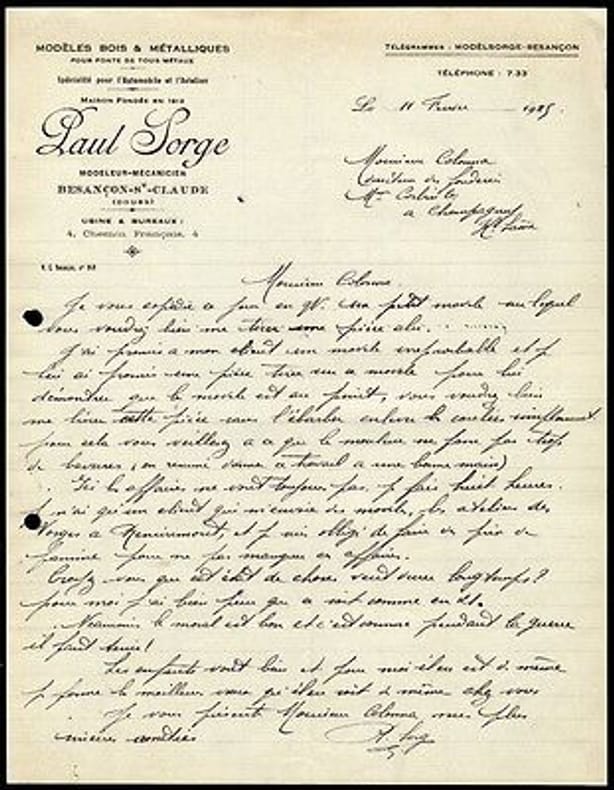 MODÈLES BOIS & MÉTALLIQUES
POUR FONTE DE TOUS MÉTAUX
Spécialité pour l'Automobile et l'Aviation
MAISON FONDÉE EN 1912
Paul Sorge
MODELEUR-MÉCANICIEN
BESANÇON-St-CLAUDE
(DOUBS)
USINE & BUREAUX:
4, Chemin Français, 4
TÉLÉGRAMMES : MODÈLSORGE-BESANÇON
TÉLÉPHONE : 7.33
Le 11 Fevrier 1925.
Monsieur Colonna
de fonderie
a Champagney
Hte Saône
Monsieur Colonna.
Je vous expédie ce jour en GV. un petit modèle au lequel
vous voudrez bien me tirer une pièce alu.
J'ai promis a mon client un modèle irréprochable et j
lui ai promis une pièce tirée du modèle pour lui
démontrer que le modèle est au point, vous voudrez bien
me livrer cette pièce sans l'ébarber enlever les coulées simplement.
pour cela vous veillerez a ce que le mouleur ne fasse pas trop
de bavures, (en résumé donner ce travail a une bonne main)
Ici les affaires ne vont toujours pas, j fais huit heures.
j n'ai qu'un client qui m'envoie des modèles, les ateliers des
Vosges a Remiremont, et j suis obligé de faire des prix de
famine pour ne pas manquer en affaires.
Croyez vous que cet état de chose veut durer longtemps?
pour moi j'ai bien peur que ce soit comme en 21.
Néanmoins le moral est bon et c'est comme pendant la guerre
il faut tenir!
Les enfants vont bien et pour moi il en est de même
j forme le meilleur vœu qu'il en soit de même chez vous
Je vous présente Monsieur Colonna mes plus
sincères amitiés